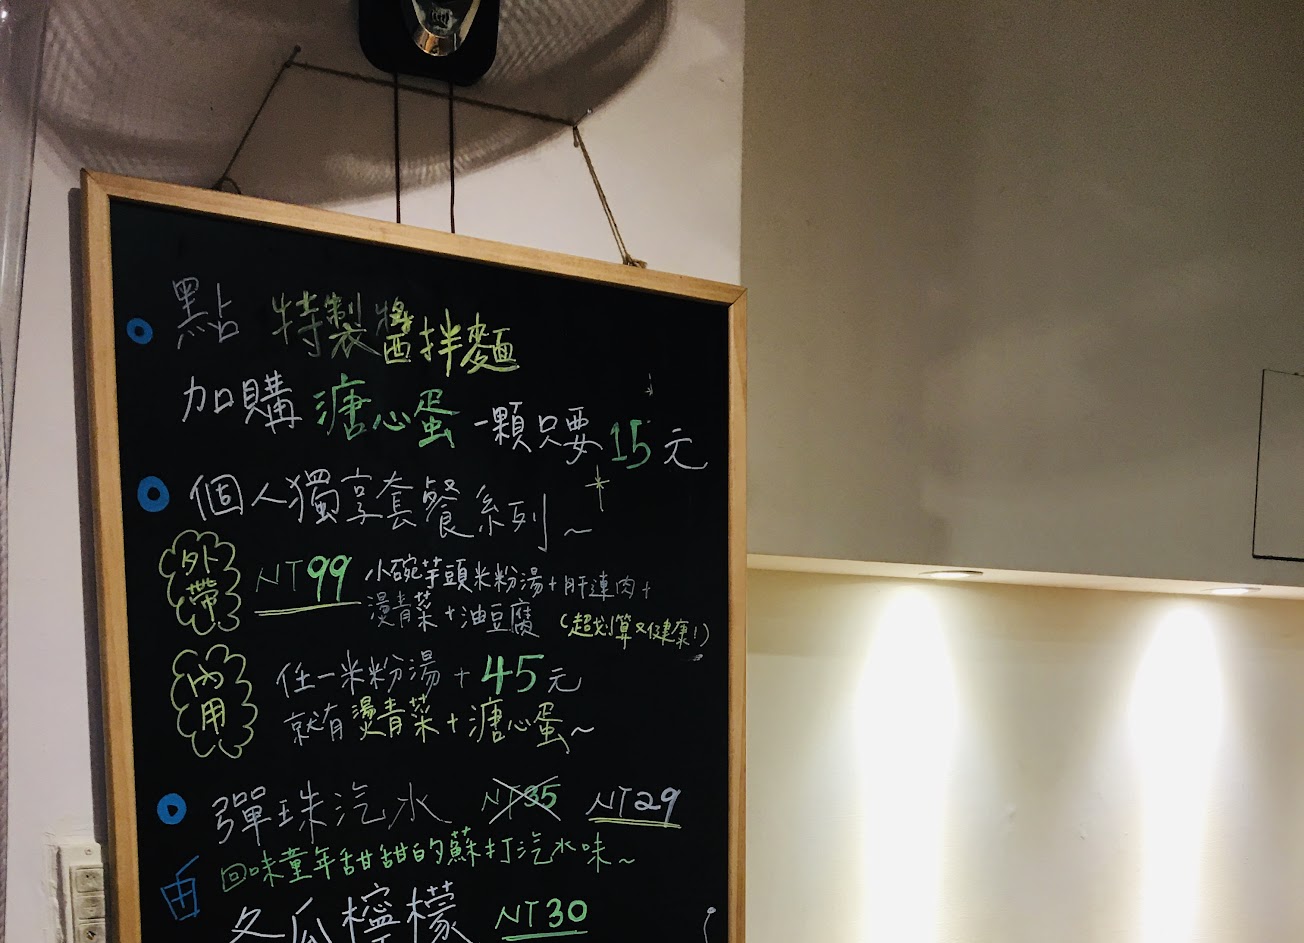 點 特製醬拌麵
加購 溏心蛋 一顆只要 15 元
個人獨享套餐系列~
外帶
NT99 小碗芋頭米粉湯+肝連肉+
燙青菜+油豆腐 (超划算又健康!)
內用
任一米粉湯 + 45元
就有燙青菜+溏心蛋~
彈珠汽水 NT35 NT29
回味童年甜甜的蘇打汽水味~
冬瓜檸檬 NT30